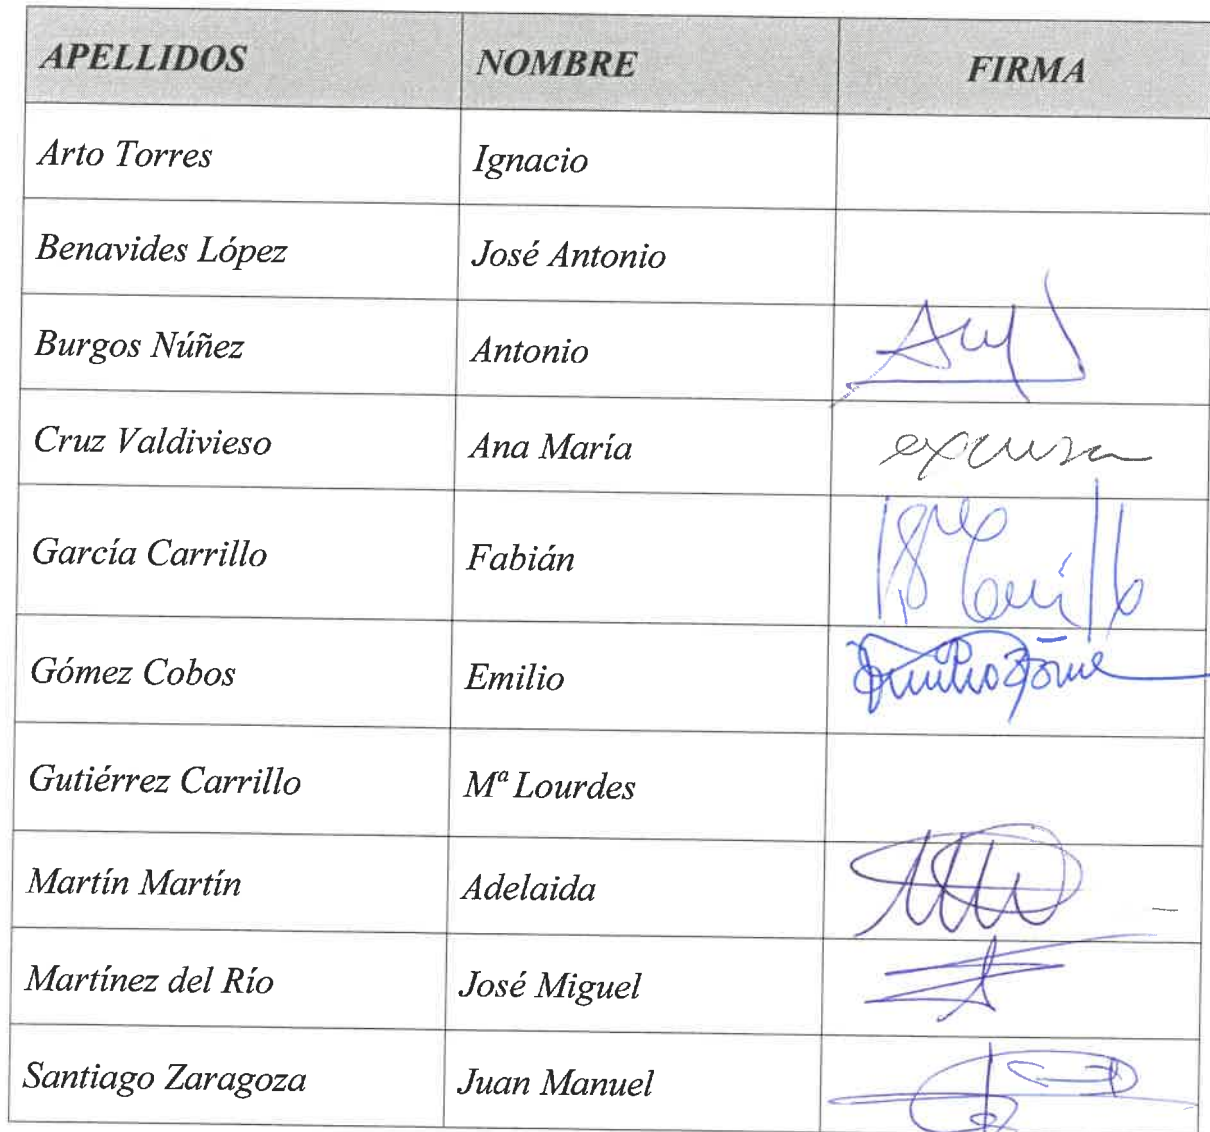 APELLIDOS NOMBRE FIRMA
Arto Torres Ignacio
Benavides López José Antonio
Burgos Núñez Antonio
Cruz Valdivieso Ana María excusa
García Carrillo Fabián
Gómez Cobos Emilio
Gutiérrez Carrillo Mª Lourdes
Martín Martín Adelaida
Martínez del Río José Miguel
Santiago Zaragoza Juan Manuel